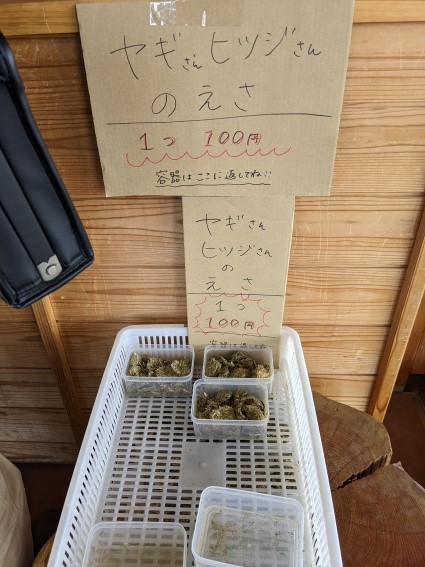 ヤギさんヒツジさん
のえさ
1つ 100円
容器はここに返してね!!
ヤギさん
ヒツジさん
の
えさ
1つ
100円
容器は返してね